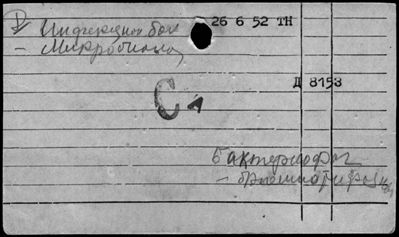 V Инфекцион бол
- Микробиолог
26 6 52 ТН
Д 8153
С 1
Бактериофаг
- брюшнотифозн